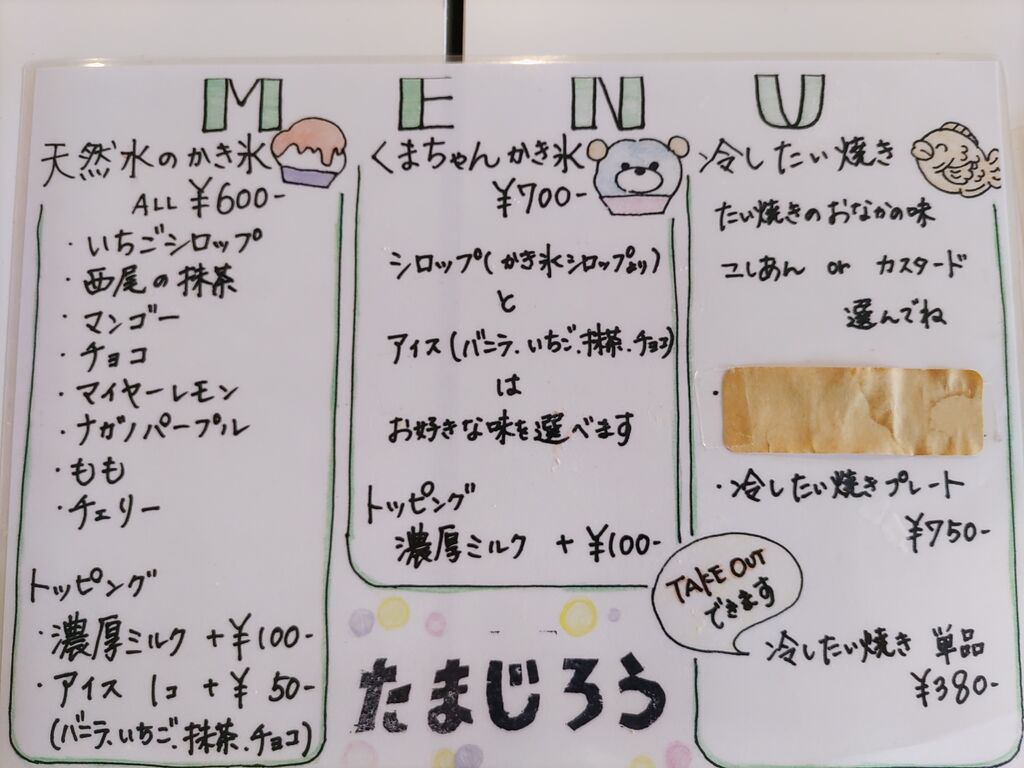 MENU
天然氷のかき氷
ALL ¥600-
・いちごシロップ
・西尾の抹茶
・マンゴー
・チョコ
・マイヤーレモン
・ナガノパープル
・もも
・チェリー
トッピング
・濃厚ミルク +¥100-
・アイス 1コ +¥ 50-
(バニラ、いちご、抹茶、チョコ)
くまちゃんかき氷
¥700-
シロップ(かき氷シロップより)
と
アイス(バニラ、いちご、抹茶、チョコ)
は
お好きな味を選べます
トッピング
濃厚ミルク +¥100-
たまじろう
冷したい焼き
たい焼きのおなかの味
こしあん or カスタード
選んでね
・
・冷したい焼きプレート
¥750-
TAKE OUT
できます
冷したい焼き 単品
¥380-